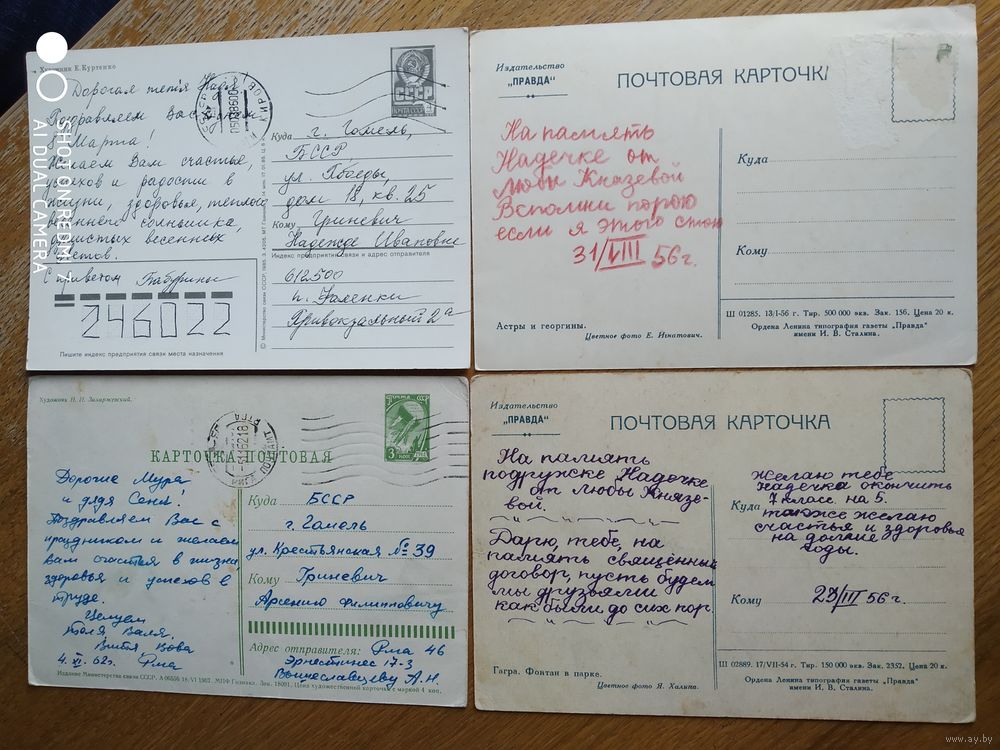 Художник Е. Куртенко
Дорогая тётя Надя!
Поздравляем Вас с
8 Марта!
Желаем Вам счастья,
успехов и радости в
жизни, здоровья, теплого
весеннего солнышка,
душистых весенних
цветов.
С приветом Бабурины
246022
Пишите индекс предприятия связи места назначения
СССР
Куда г. Гомель,
БССР
ул. Победы,
дом 18, кв. 25
Кому Гриневич
Надежде Ивановне
Индекс предприятия связи и адрес отправителя
612500
п. Фаленки
Привокзальный 2а
Издательство
„ПРАВДА“
ПОЧТОВАЯ КАРТОЧК
На память
Надечке от
Любы Князевой
Вспомни порою
если я этого стою
31/VIII 56 г.
Куда
Кому
Астры и георгины.
Цветное фото Е. Игнатович.
Ш 01285. 13/I-56 г. Тир. 500 000 экз. Зак. 156. Цена 20 к.
Ордена Ленина типография газеты „Правда“
имени И. В. Сталина.
КАРТОЧКА ПОЧТОВАЯ
Дорогие Мура
и дядя Сеня!
Поздравляем Вас с
праздником и желаем
Вам счастья в жизни
здоровья и успехов в
труде.
Целуем
Толя Валя.
Витя, Вова
4. XI. 62г. Рига
ПОЧТА СССР
3 коп
Куда БССР
г. Гомель
ул. Крестьянская № 39
Кому Гриневич
Арсению Филипповичу
Адрес отправителя: Рига 46
Эрнестинес 17-3
А. Н.
Издание Министерства связи СССР.
Издательство
„ПРАВДА“
ПОЧТОВАЯ КАРТОЧКА
На память
подружке Надечке
от Любы Князе-
вой.
Дарю, тебе, на
память священный
договор, пусть будем
мы друзьями
как были до сих пор.
Желаю тебе
Надечка окончить
Куда 7 класс. на 5.
также желаю
счастья и здоровья
на долгие
годы.
Кому 29/III 56 г.
Гагра. Фонтан в парке.
Цветное фото Я. Халипа.
Ш 02889. 17/VII-54 г. Тир. 150 000 экз. Зак. 2352. Цена 20 к.
Ордена Ленина типография газеты „Правда“
имени И. В. Сталина.
SHOT ON REDMI 7
AI DUAL CAMERA
www.ay.by